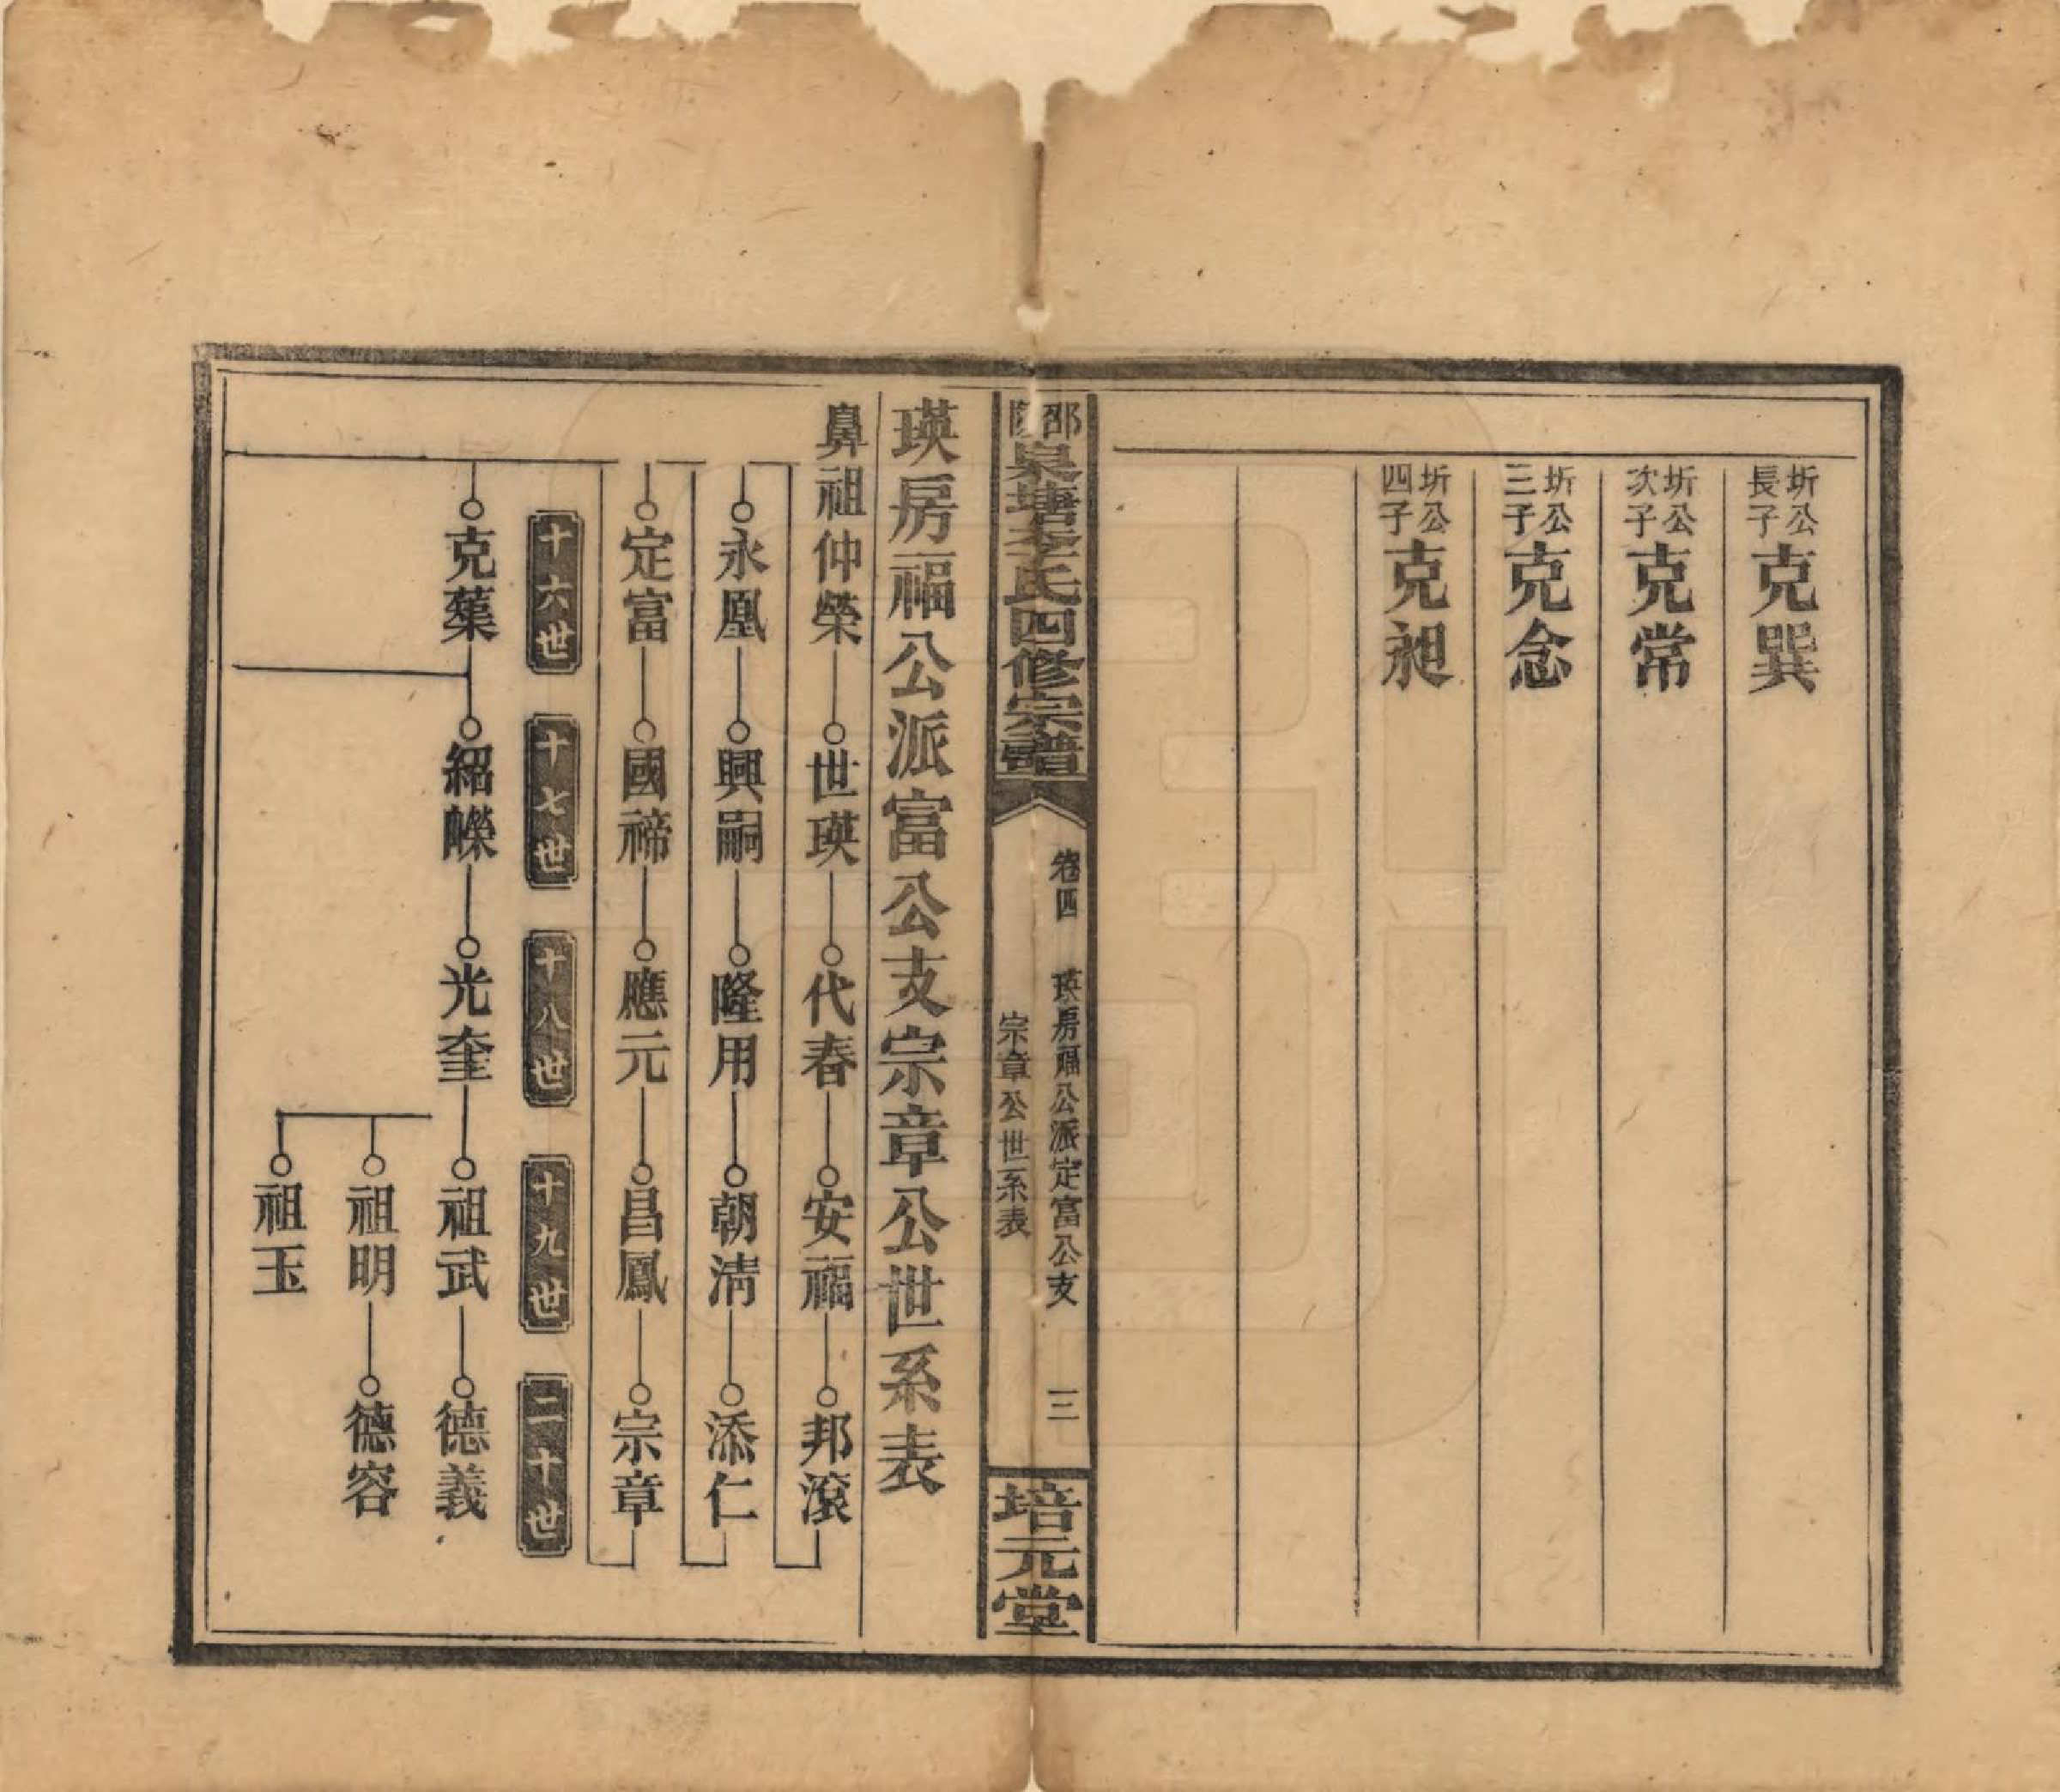 圻公長子克巽
圻公次子克常
圻公三子克念
圻公四子克昶
邵陵泉塘李氏四修宗譜
卷四 瑛房福公派定富公支 三
宗章公世系表
培元堂
瑛房福公派富公支宗章公世系表
鼻祖仲榮 世瑛 代春 安福 邦滾
永凰 興嗣 隆用 朝清 添仁
定富 國禘 應元 昌鳳 宗章
十六世 十七世 十八世 十九世 二十世
克蕖 紹皪 光奎 祖武 德義
祖明 德容
祖玉